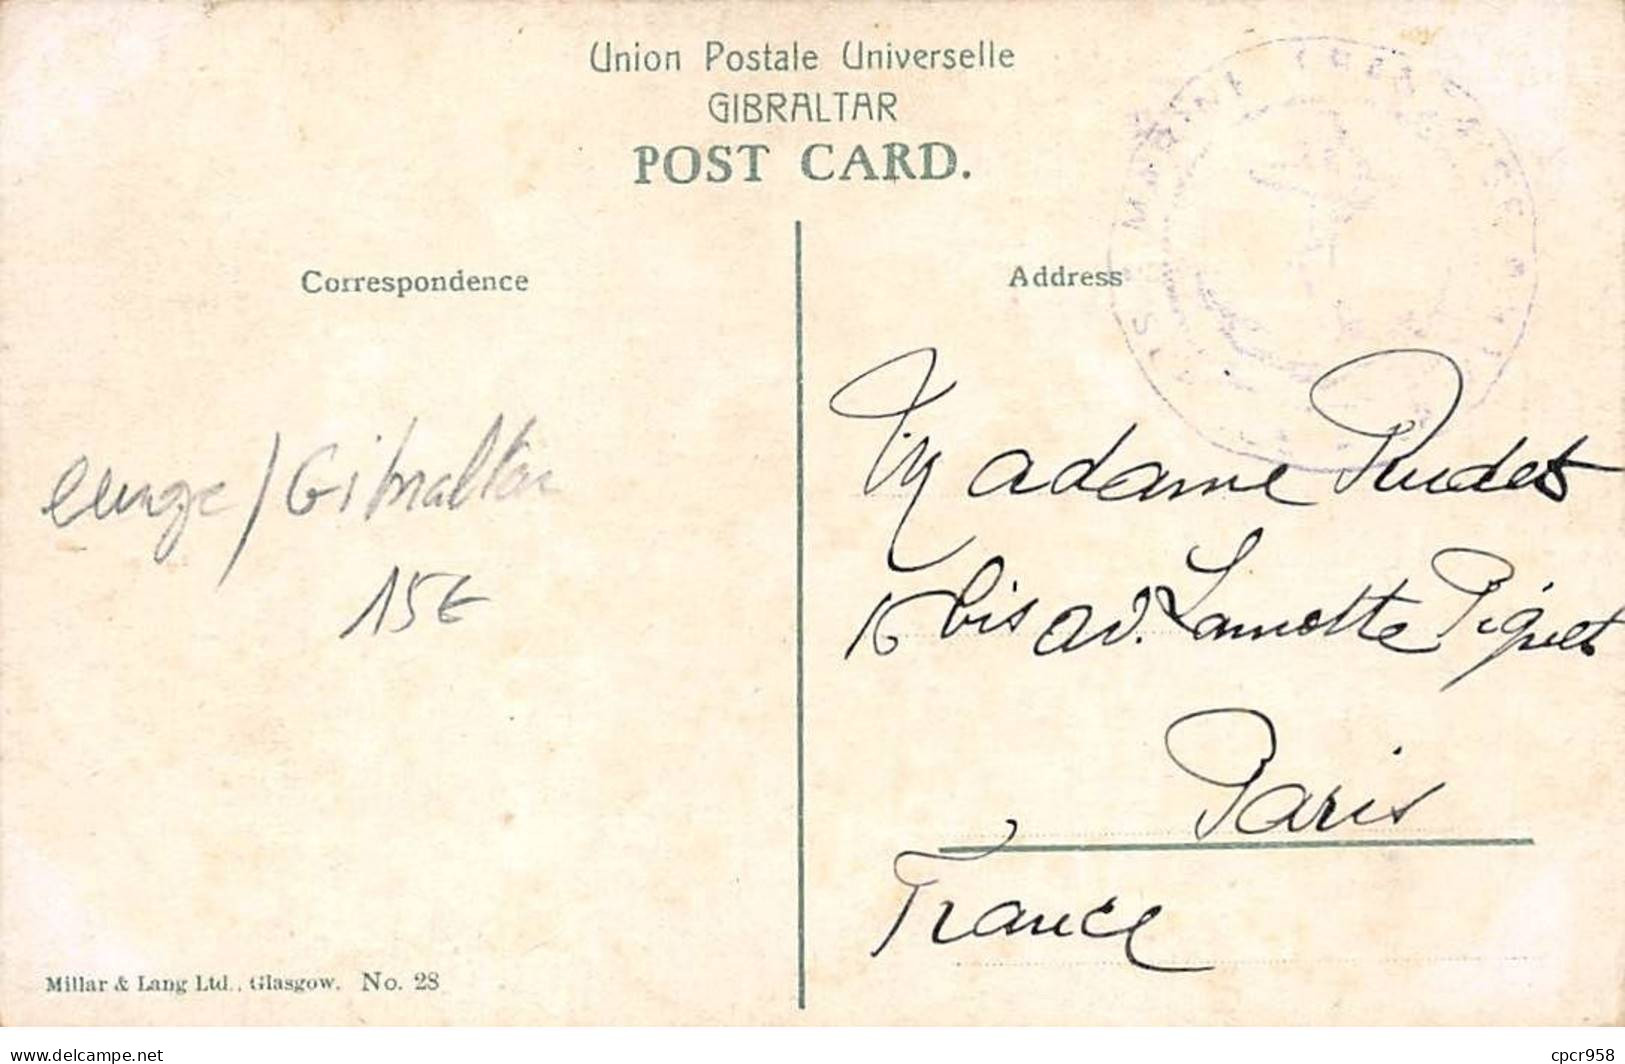 Union Postale Universelle
GIBRALTAR
POST CARD.
Correspondence
Address
MARINE FRANÇAISE
/ Gibraltar
15€
Madame Rudet
16 bis av. Lamotte Piquet
Paris
France
Millar & Lang Ltd., Glasgow. No. 28
www.delcampe.net
cpcr958